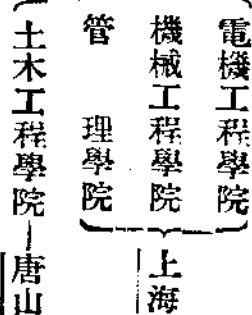 電機工程學院
機械工程學院
管理學院
上海
土木工程學院—唐山